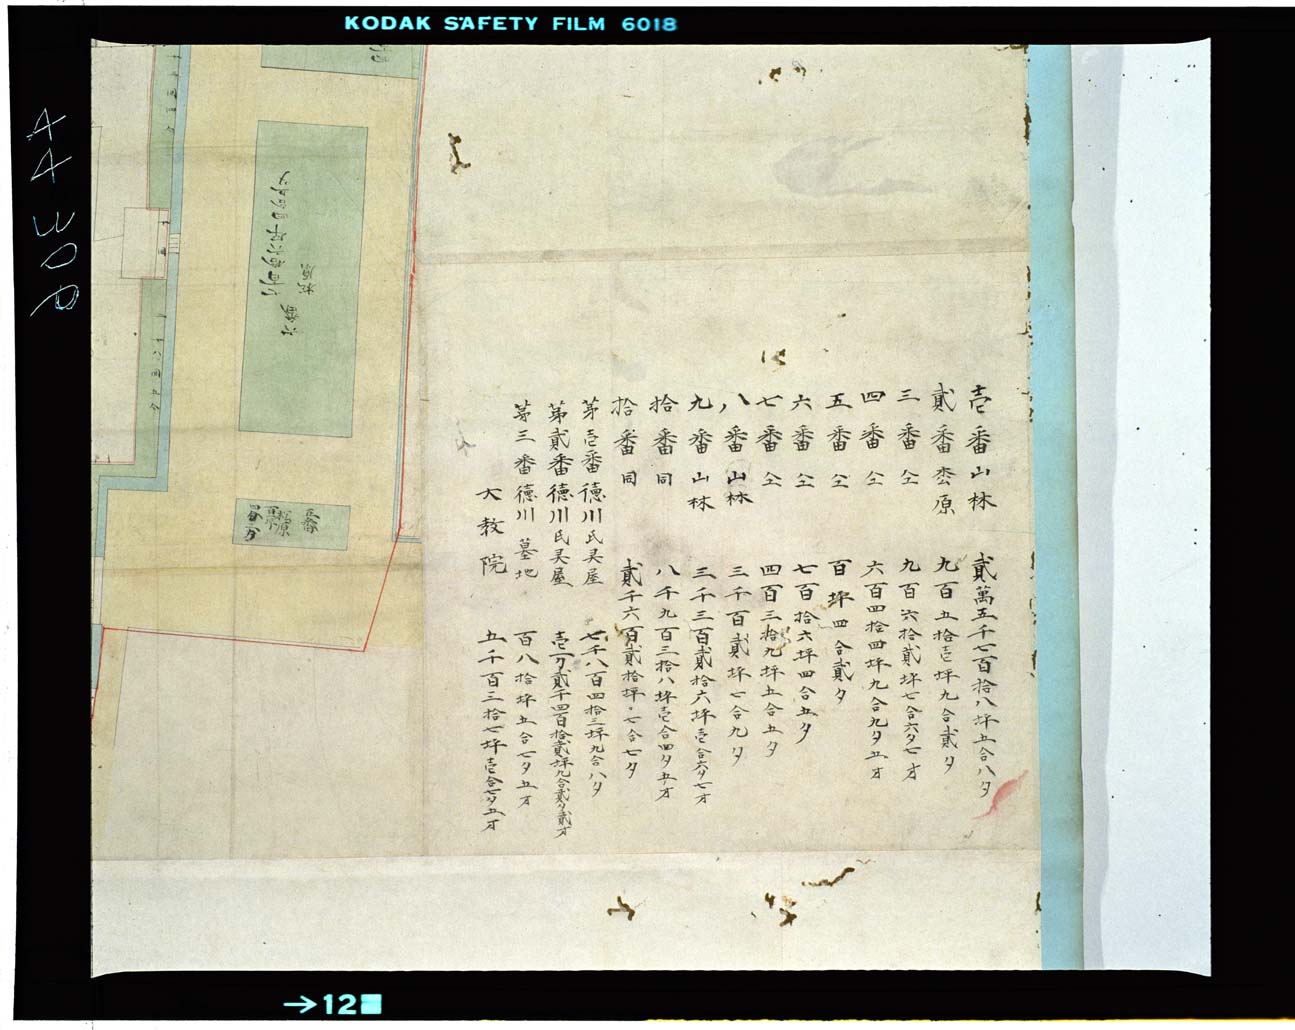 KODAK SAFETY FILM 6018
壱番山林 貳萬五千七百拾八坪五合八夕
貳番枩原 九百五拾壱坪九合貳夕
三番仝 九百六拾貳坪七合六夕七才
四番仝 六百四拾四坪九合九夕五才
五番仝 百坪四合貳夕
六番仝 七百拾六坪四合五夕
七番仝 四百三拾九坪五合五夕
八番山林 三千百貳坪七合九夕
九番山林 三千三百貳拾六坪壱合六夕七才
拾番同 八千九百三拾八坪壱合四夕五才
拾番同 貳千六百貳拾坪七合七夕
第壱番德川氏㚑屋 七千八百四拾三坪九合八夕
第貳番德川氏㚑屋 壱万貳千四百拾貳坪九合貳夕貳才
第三番德川墓地 百八拾坪五合七夕五才
大教院 五千百三拾七坪壱合七夕五才
五番
松原
→12